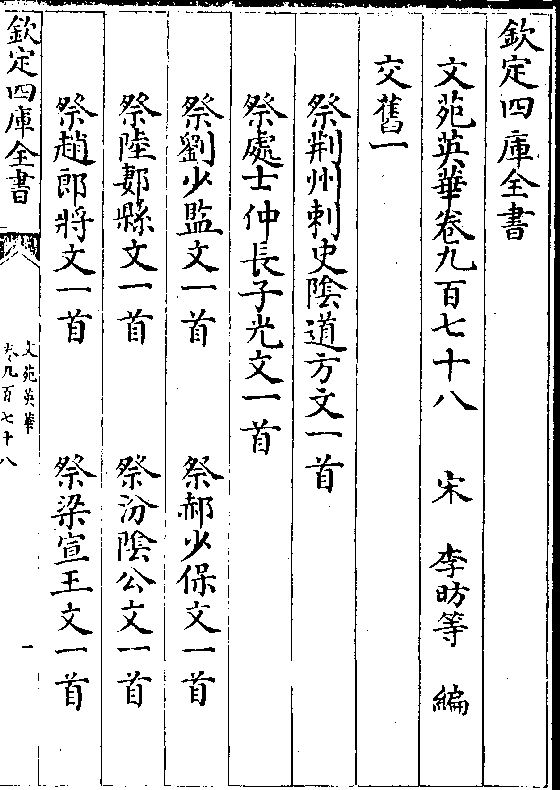 欽定四庫全書
文苑英華卷九百七十八　宋　李昉等　編
交舊一
祭荆州刺史陰道方文一首
祭處士仲長子光文一首
祭劉少監文一首　祭郝少保文一首
祭陸郪縣文一首　祭汾陰公文一首
祭趙郎將文一首　祭梁宣王文一首
欽定四庫全書
文苑英華
卷九百七十八
一